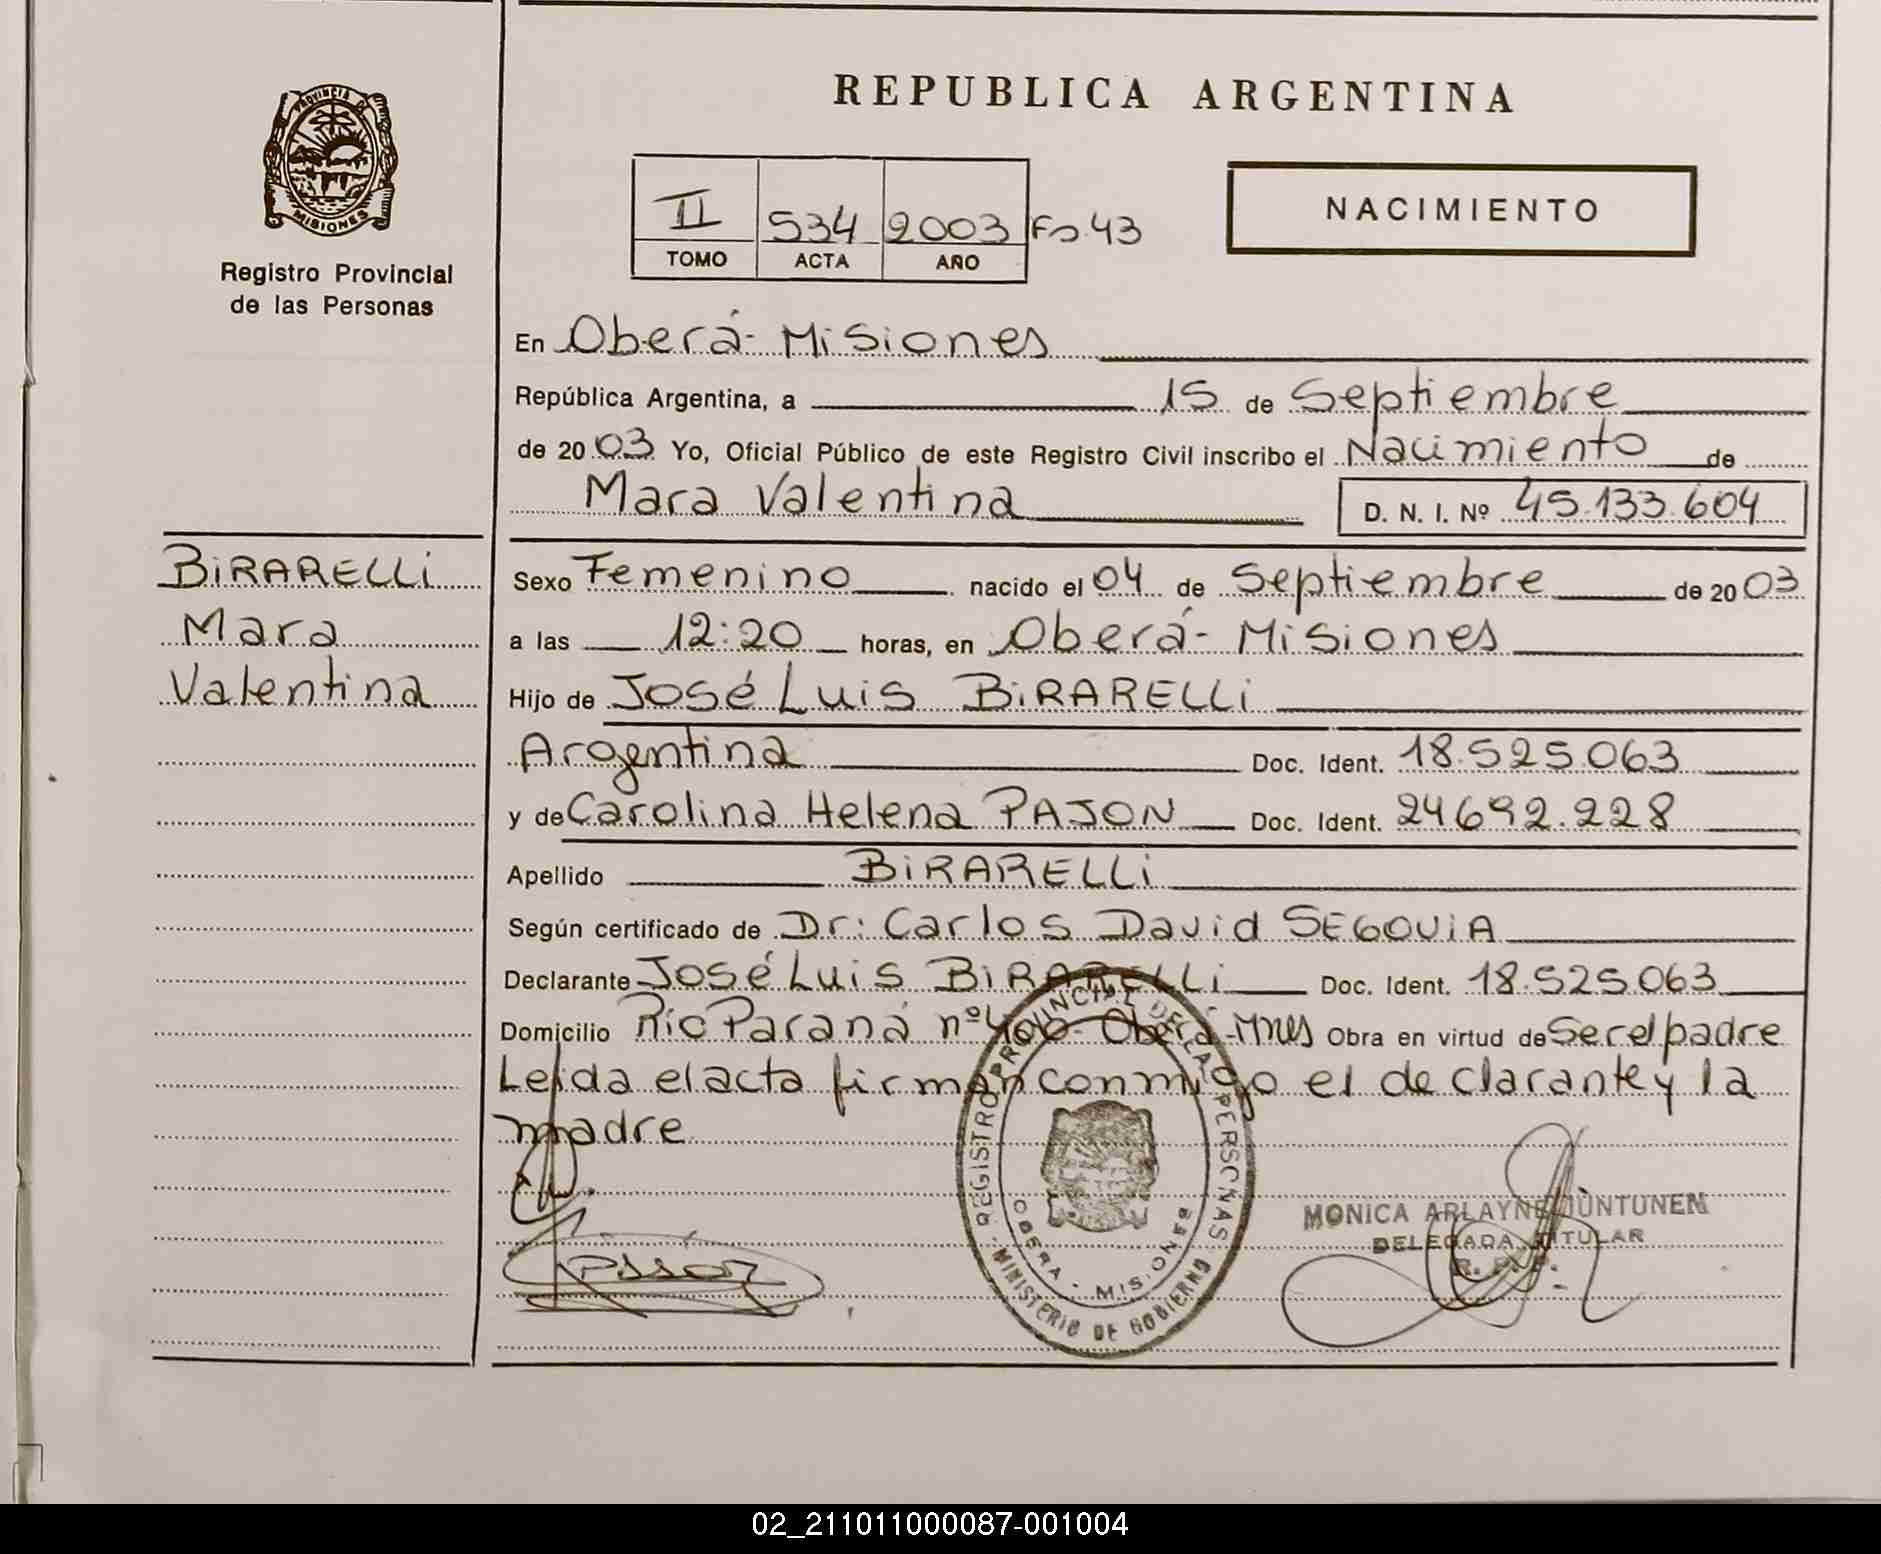 REPUBLICA ARGENTINA
PROVINCIA DE
MISIONES
Registro Provincial
de las Personas
II 534 2003 Fo. 43
TOMO ACTA AÑO
NACIMIENTO
En Oberá - Misiones
República Argentina, a 15 de Septiembre
de 2003 Yo, Oficial Público de este Registro Civil inscribo el Nacimiento de
Mara Valentina D. N. I. Nº 45.133.604
BIRARELLI
Mara
Valentina
Sexo Femenino nacido el 04 de Septiembre de 2003
a las 12:20 horas, en Oberá - Misiones
Hijo de José Luis BIRARELLI
Argentina Doc. Ident. 18.525.063
y de Carolina Helena PAJON Doc. Ident. 24692.228
Apellido BIRARELLI
Según certificado de Dr: Carlos David SEGOVIA
Declarante José Luis BIRARELLI Doc. Ident. 18.525.063
Domicilio Río Paraná nº 400 - Oberá - Mnes Obra en virtud de Ser el padre
Leida el acta firman conmigo el declarante y la
madre
REGISTRO PROVINCIAL DE LAS PERSONAS
OBERA - MISIONES
MINISTERIO DE GOBIERNO
MONICA ARLAYNE JUNTUNEN
DELEGADA TITULAR
R. P. P.
02_211011000087-001004